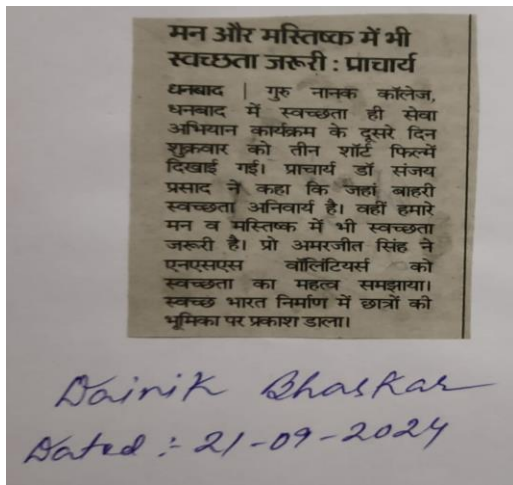 मन और मस्तिष्क में भी
स्वच्छता जरूरी : प्राचार्य
धनबाद | गुरु नानक कॉलेज,
धनबाद में स्वच्छता ही सेवा
अभियान कार्यक्रम के दूसरे दिन
शुक्रवार को तीन शॉर्ट फिल्में
दिखाई गई। प्राचार्य डॉ संजय
प्रसाद ने कहा कि जहां बाहरी
स्वच्छता अनिवार्य है। वहीं हमारे
मन व मस्तिष्क में भी स्वच्छता
जरूरी है। प्रो अमरजीत सिंह ने
एनएसएस वॉलिंटियर्स को
स्वच्छता का महत्व समझाया।
स्वच्छ भारत निर्माण में छात्रों की
भूमिका पर प्रकाश डाला।
Dainik Bhaskar
Dated :- 21-09-2024